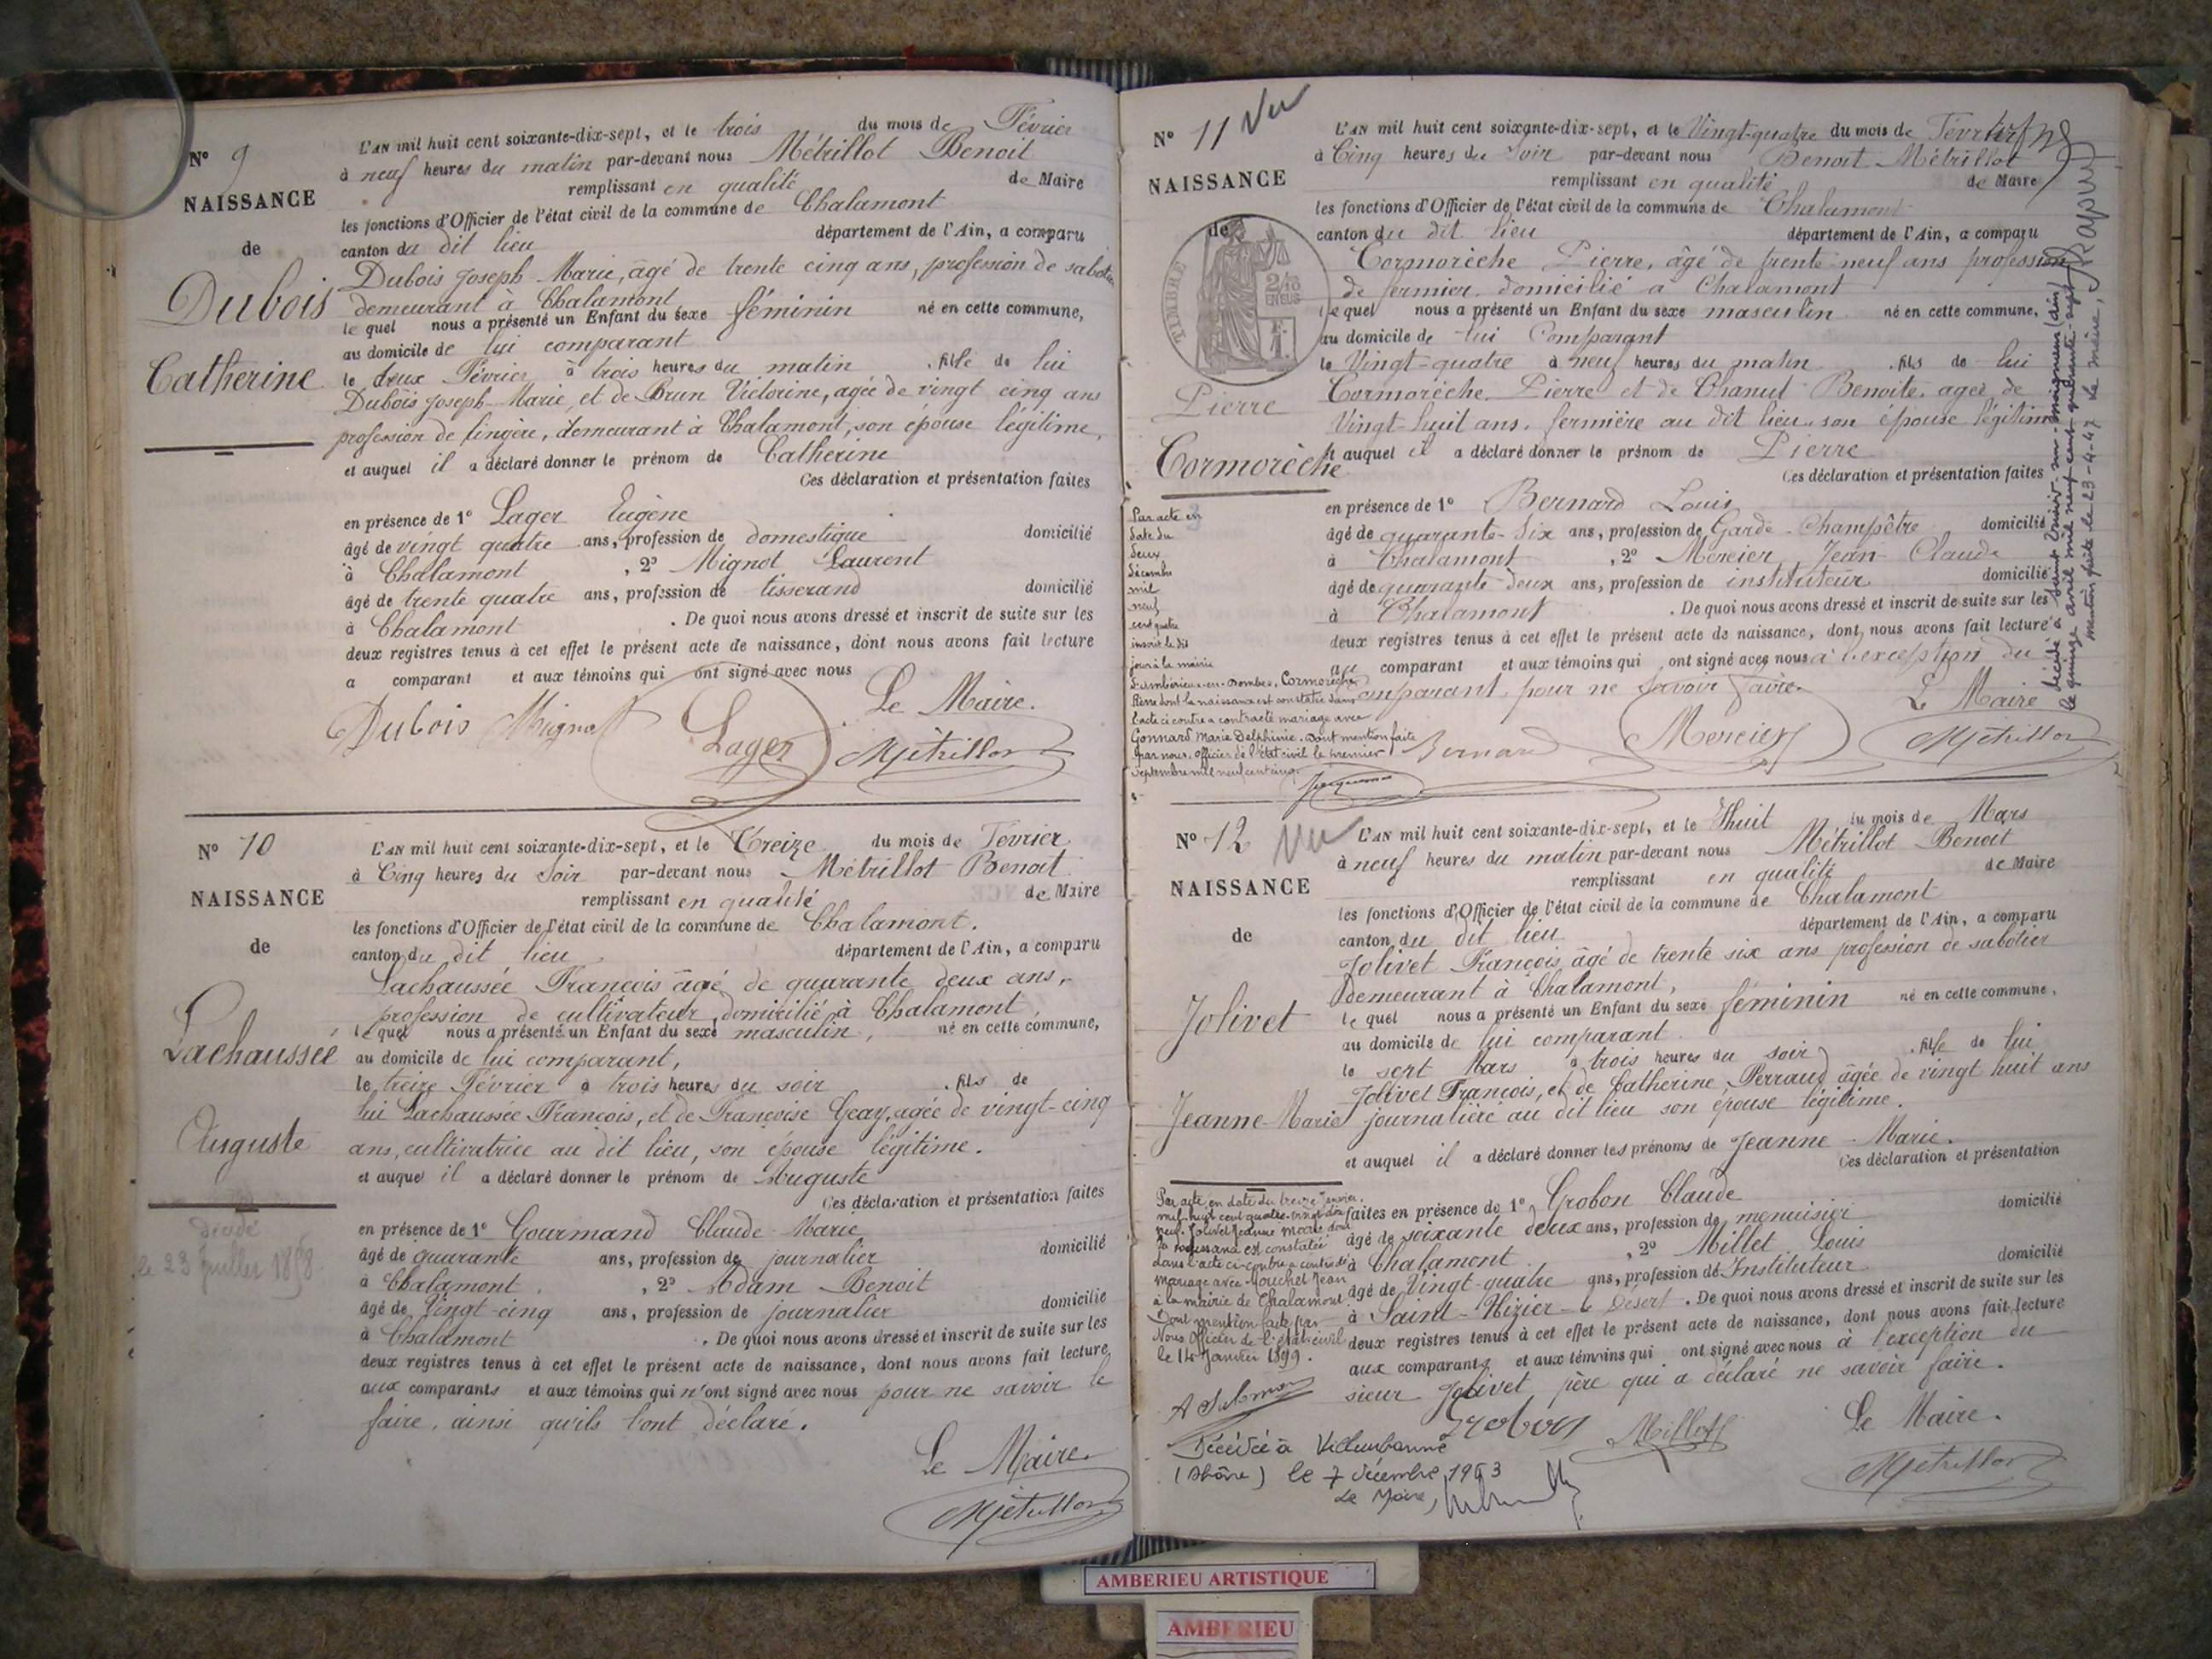 N° 9
NAISSANCE
de
Dubois
Catherine
L'AN mil huit cent soixante-dix-sept, et le trois du mois de Février
à neuf heures du matin par-devant nous Métrillot Benoit
remplissant en qualité de Maire
les fonctions d'Officier de l'état civil de la commune de Chalamont
canton du dit lieu département de l'Ain, a comparu
Dubois Joseph-Marie, âgé de trente cinq ans, profession de sabotier
demeurant à Chalamont
le quel nous a présenté un Enfant du sexe féminin né en cette commune,
au domicile de lui comparant
le deux Février à trois heures du matin . fille de lui
Dubois Joseph-Marie, et de Brun Victorine, agée de vingt cinq ans
profession de lingère, demeurant à Chalamont, son épouse légitime,
et auquel il a déclaré donner le prénom de Catherine
Ces déclaration et présentation faites
en présence de 1° Lager Eugène
âgé de vingt quatre ans, profession de domestique domicilié
à Chalamont , 2° Mignot Laurent
âgé de trente quatre ans, profession de tisserand domicilié
à Chalamont . De quoi nous avons dressé et inscrit de suite sur les
deux registres tenus à cet effet le présent acte de naissance, dont nous avons fait lecture
a comparant et aux témoins qui ont signé avec nous
Le Maire.
Dubois Mignot Lager Métrillot
N° 10
NAISSANCE
de
Lachaussée
Auguste
décédé
le 23 Juillet 1858
L'AN mil huit cent soixante-dix-sept, et le Treize du mois de Février
à Cinq heures du Soir par-devant nous Métrillot Benoit
remplissant en qualité de Maire
les fonctions d'Officier de l'état civil de la commune de Chalamont.
canton du dit lieu département de l'Ain, a comparu
Lachaussée François âgé de quarante deux ans,
profession de cultivateur, domicilié à Chalamont
le quel nous a présenté un Enfant du sexe masculin, né en cette commune,
au domicile de lui comparant,
le treize Février à trois heures du soir . fils de
lui Lachaussée François, et de Françoise Geay, agée de vingt-cinq
ans, cultivatrice au dit lieu, son épouse légitime.
et auquel il a déclaré donner le prénom de Auguste
Ces déclaration et présentation faites
en présence de 1° Gourmand Claude-Marie
âgé de quarante ans, profession de journalier domicilié
à Chalamont , 2° Adam Benoit
âgé de Vingt-cinq ans, profession de journalier domicilié
à Chalamont . De quoi nous avons dressé et inscrit de suite sur les
deux registres tenus à cet effet le présent acte de naissance, dont nous avons fait lecture
aux comparants et aux témoins qui n'ont signé avec nous pour ne savoir le
faire, ainsi qu'ils l'ont déclaré.
Le Maire.
Métrillot
N° 11 Vu
NAISSANCE
de
TIMBRE
2/10
EN SUS
Pierre
Cormorèche
L'AN mil huit cent soixante-dix-sept, et le Vingt-quatre du mois de Février
à Cinq heures du Soir par-devant nous Benoit Métrillot
remplissant en qualité de Maire
les fonctions d'Officier de l'état civil de la commune de Chalamont
canton du dit lieu département de l'Ain, a comparu
Cormorèche Pierre, âgé de trente-neuf ans profession
de fermier domicilié à Chalamont
le quel nous a présenté un Enfant du sexe masculin né en cette commune,
au domicile de lui Comparant
le Vingt-quatre à neuf heures du matin . fils de lui
Cormorèche Pierre et de Chanut Benoite agée de
Vingt-huit ans, fermière au dit lieu, son épouse légitime
et auquel il a déclaré donner le prénom de Pierre
Ces déclaration et présentation faites
en présence de 1° Bernard Louis
âgé de quarante-Six ans, profession de Garde-Champêtre domicilié
à Chalamont , 2° Mercier Jean-Claude
âgé de quarante-deux ans, profession de instituteur domicilié
à Chalamont . De quoi nous avons dressé et inscrit de suite sur les
deux registres tenus à cet effet le présent acte de naissance, dont nous avons fait lecture
au comparant et aux témoins qui ont signé avec nous à l'exception du
Comparant pour ne Savoir faire.
Le Maire
Bernard Mercier Métrillot
Par acte en
date du
deux
décembre
mil
neuf
cent quatre
inscrit le dit
jour à la mairie
d'Ambérieux-en-Dombes, Cormorèche
Pierre dont la naissance est constatée dans
l'acte ci contre a contracté mariage avec
Gonnard Marie Delphinie. Dont mention faite
par nous, officier de l'état civil le premier
septembre mil neuf cent cinq.
le quinze avril mil neuf cent quarante-sept
mention faite le 23-4-47 Le maire,
N° 12 Vu
NAISSANCE
de
Jolivet
Jeanne-Marie
L'AN mil huit cent soixante-dix-sept, et le huit du mois de Mars
à neuf heures du matin par-devant nous Métrillot Benoit
remplissant en qualité de Maire
les fonctions d'Officier de l'état civil de la commune de Chalamont
canton du dit lieu département de l'Ain, a comparu
Jolivet François âgé de trente six ans profession de sabotier
demeurant à Chalamont,
le quel nous a présenté un Enfant du sexe féminin né en cette commune,
au domicile de lui comparant
le sept Mars à trois heures du soir . fille de lui
Jolivet François, et de Catherine Perraud âgée de vingt huit ans
journalière au dit lieu son épouse légitime.
et auquel il a déclaré donner les prénoms de Jeanne-Marie.
Ces déclaration et présentation
faites en présence de 1° Grobon Claude
âgé de soixante deux ans, profession de menuisier domicilié
à Chalamont , 2° Millet Louis
âgé de Vingt-quatre ans, profession de Instituteur domicilié
à Saint-Nizier-le Désert . De quoi nous avons dressé et inscrit de suite sur les
deux registres tenus à cet effet le présent acte de naissance, dont nous avons fait lecture
aux comparants et aux témoins qui ont signé avec nous à l'exception du
sieur Jolivet père qui a déclaré ne savoir faire.
Grobon Millet Le Maire.
Métrillot
Par acte en date du treize Janvier
mil huit cent quatre-vingt-dix
neuf, Jolivet Jeanne Marie dont
la naissance est constatée
dans l'acte ci-contre a contracté
mariage avec Jean
à la mairie de Chalamont
Dont mention faite par
Nous Officier de l'état civil
le 14 Janvier 1899.
Décédée à Villeurbanne
(Rhône) le 7 décembre 1963
Le Maire,
AMBERIEU ARTISTIQUE
AMBERIEU